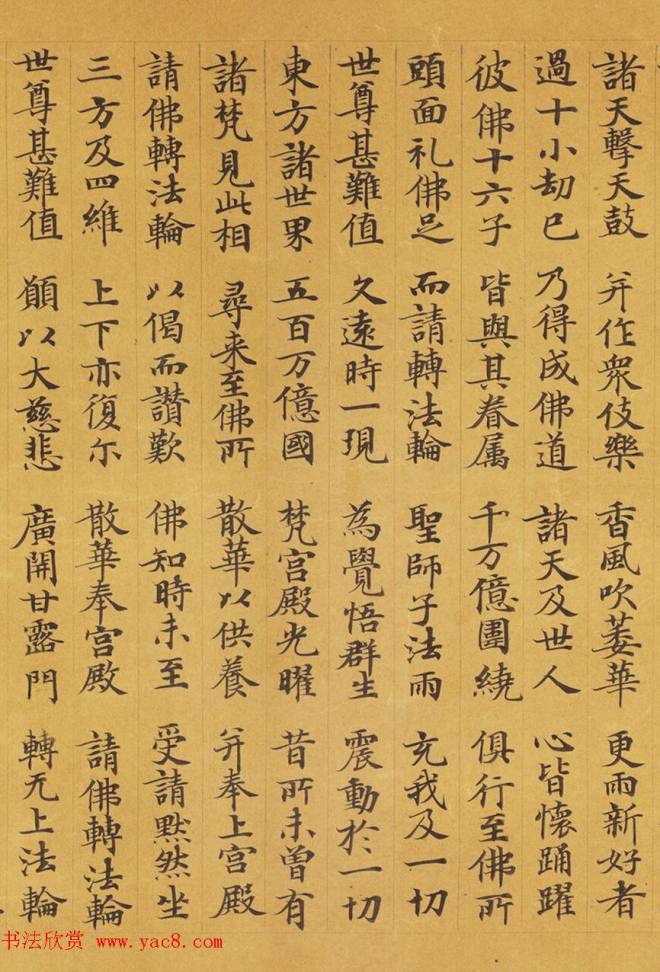 諸天擊天鼓 并作衆伎樂 香風吹萎華 更雨新好者
過十小劫已 乃得成佛道 諸天及世人 心皆懷踊躍
彼佛十六子 皆與其眷属 千万億圍繞 俱行至佛所
頭面礼佛足 而請轉法輪 聖師子法雨 充我及一切
世尊甚難值 久遠時一現 為覺悟群生 震動於一切
東方諸世界 五百万億國 梵宮殿光曜 昔所未曾有
諸梵見此相 尋来至佛所 散華以供養 并奉上宮殿
請佛轉法輪 以偈而讃歎 佛知時未至 受請默然坐
三方及四維 上下亦復尒 散華奉宮殿 請佛轉法輪
世尊甚難值 願以大慈悲 廣開甘露門 轉无上法輪
书法欣赏 www.yac8.com